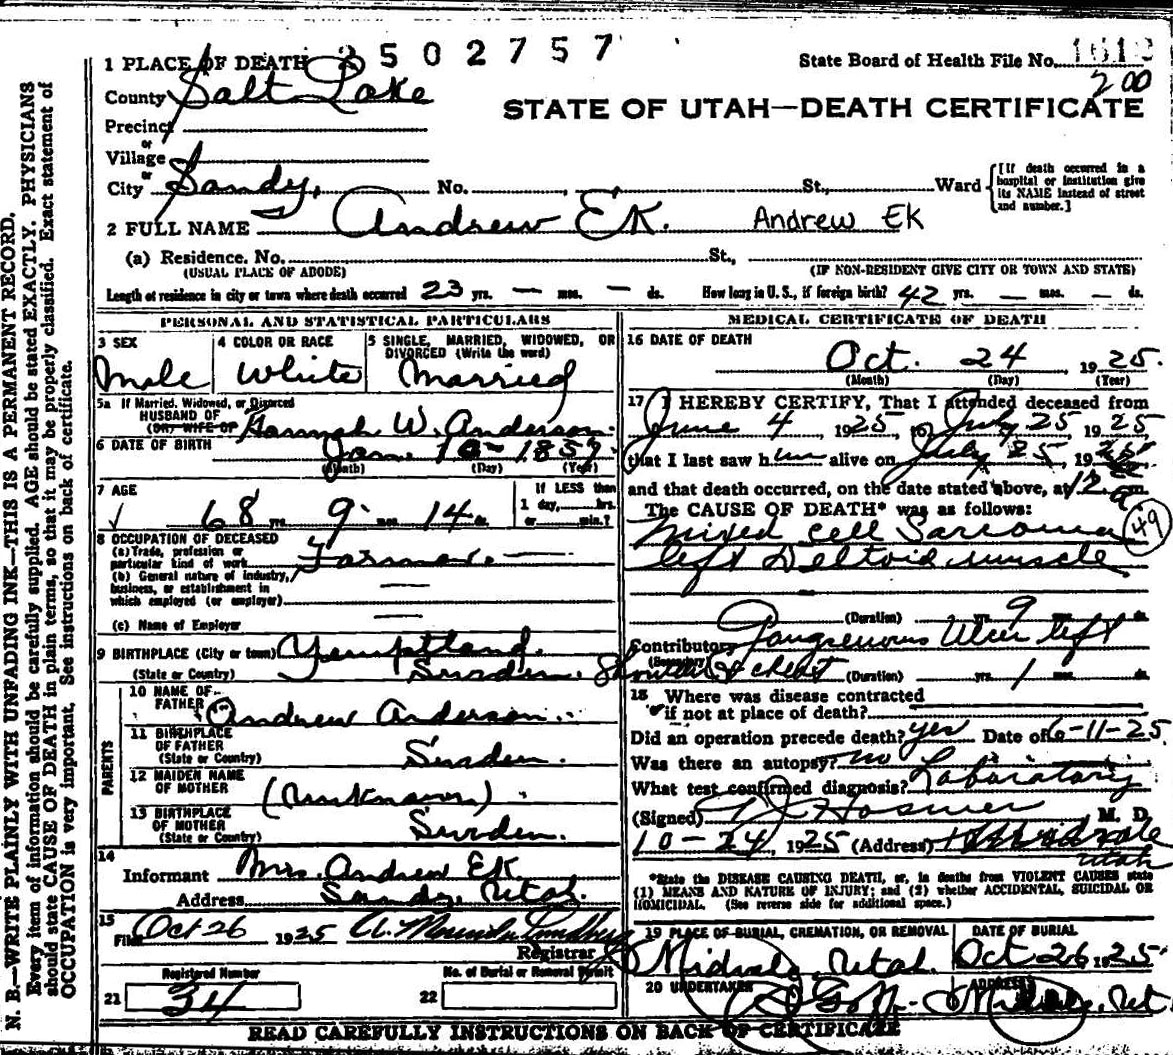 N. B.—WRITE PLAINLY WITH UNFADING INK—THIS IS A PERMANENT RECORD.
Every item of information should be carefully supplied. AGE should be stated EXACTLY. PHYSICIANS
should state CAUSE OF DEATH in plain terms, so that it may be properly classified. Exact statement of
OCCUPATION is very important. See instructions on back of certificate.
1 PLACE OF DEATH 3502757
State Board of Health File No.
200
County Salt Lake
STATE OF UTAH—DEATH CERTIFICATE
Precinct
or
Village
or
City Sandy, No. St., Ward
[If death occurred in a
hospital or institution give
its NAME instead of street
and number.]
2 FULL NAME Andrew EK. Andrew Ek
(a) Residence. No. St.,
(USUAL PLACE OF ABODE) (IF NON-RESIDENT GIVE CITY OR TOWN AND STATE)
Length of residence in city or town where death occurred 23 yrs. — mos. — ds. How long in U. S., if foreign birth? 42 yrs. — mos. — ds.
PERSONAL AND STATISTICAL PARTICULARS
3 SEX
Male
4 COLOR OR RACE
White
5 SINGLE, MARRIED, WIDOWED, OR
DIVORCED (Write the word)
Married
5a If Married, Widowed, or Divorced
HUSBAND OF
(OR) WIFE OF Hannah W. Anderson
6 DATE OF BIRTH Jan. 10 - 1857
(Month) (Day) (Year)
7 AGE
68 yrs 9 mos 14 ds.
If LESS than
1 day, hrs.
or min.?
8 OCCUPATION OF DECEASED
(a) Trade, profession or
particular kind of work Farmer. —
(b) General nature of industry,
business, or establishment in
which employed (or employer) —
(c) Name of Employer —
9 BIRTHPLACE (City or town) Yemptland.
(State or Country) Sweden.
PARENTS
10 NAME OF
FATHER Andrew Anderson.
11 BIRTHPLACE
OF FATHER
(State or Country) Sweden.
12 MAIDEN NAME
OF MOTHER (Unknown)
13 BIRTHPLACE
OF MOTHER
(State or Country) Sweden.
14
Informant Mrs. Andrew EK.
Address Sandy, Utah.
15
Filed Oct 26 1925
Registrar
Registered Number
21 34
No. of Burial or Removal Permit
22
MEDICAL CERTIFICATE OF DEATH
16 DATE OF DEATH
Oct. 24 1925.
(Month) (Day) (Year)
17 I HEREBY CERTIFY, That I attended deceased from
June 4, 1925, to July 25 1925
that I last saw him alive on July 25, 1925
and that death occurred, on the date stated above, at 12 m.
The CAUSE OF DEATH* was as follows:
Mixed cell Sarcoma 49
left Deltoid muscle
(Duration) yrs. 9
Contributory Gangrenous Ulcer left
(Secondary) Shoulder & chest (Duration) yrs. 1 mos. ds.
18 Where was disease contracted
if not at place of death?
Did an operation precede death? yes Date of 6-11-25
Was there an autopsy? no
What test confirmed diagnosis? Laboratory
(Signed) Hosmer M. D.
10-24, 1925 (Address) Midvale
Utah
*State the DISEASE CAUSING DEATH, or, in deaths from VIOLENT CAUSES state
(1) MEANS AND NATURE OF INJURY; and (2) whether ACCIDENTAL, SUICIDAL OR
HOMICIDAL. (See reverse side for additional space.)
19 PLACE OF BURIAL, CREMATION, OR REMOVAL
Midvale, Utah.
DATE OF BURIAL
Oct 26 1925
20 UNDERTAKER
Goff
ADDRESS
Midvale, Ut.
READ CAREFULLY INSTRUCTIONS ON BACK OF CERTIFICATE